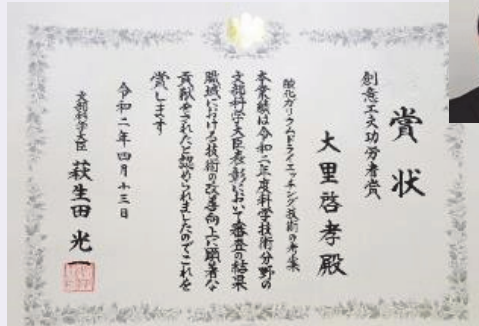 賞状
創意工夫功労者賞
大里啓孝殿
酸化ガリウムドライエッチング技術の考案
本業績は令和二年度科学技術分野の
文部科学大臣表彰において審査の結果
職域における技術の改善向上に顕著な
貢献をされたと認められましたのでこれを
賞します
令和二年四月十三日
文部科学大臣 萩生田光一